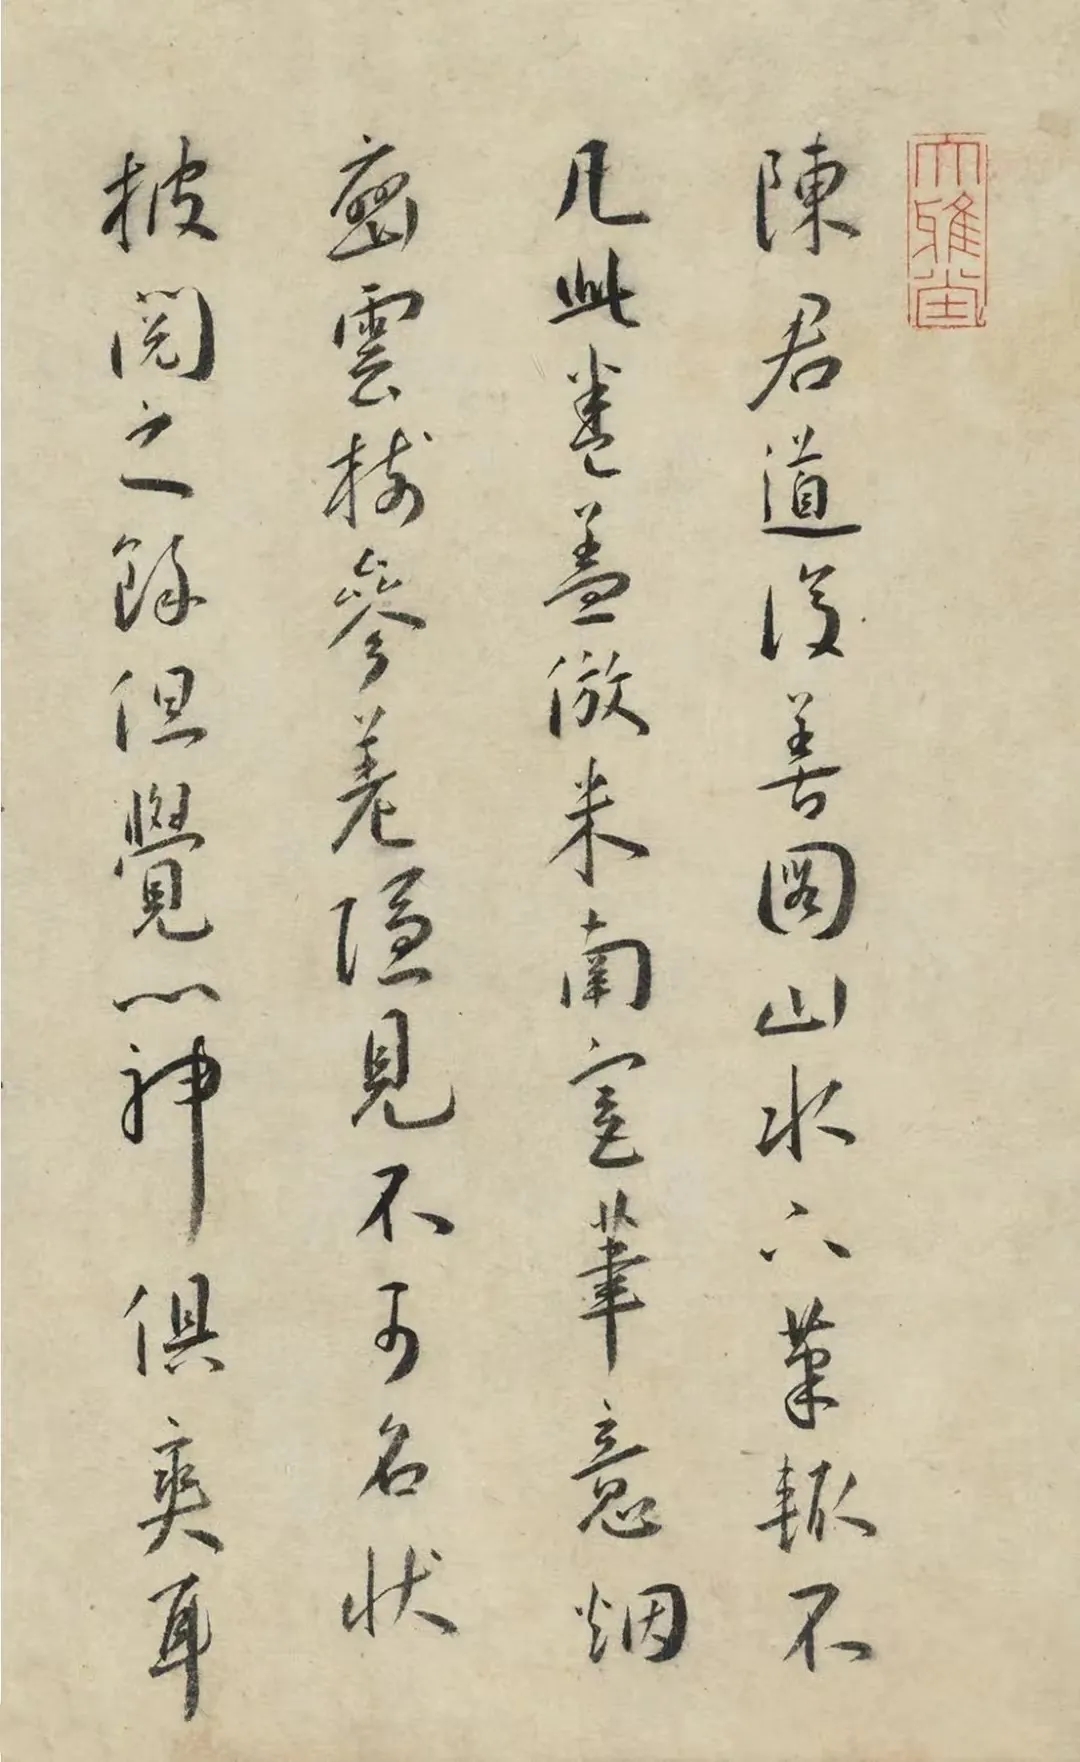 大雅堂
陳君道復善圖山水下筆輒不
凡此卷蓋倣米南宮筆意烟
巒雲樹參差隱見不可名狀
披閱之餘但覺心神俱爽耳